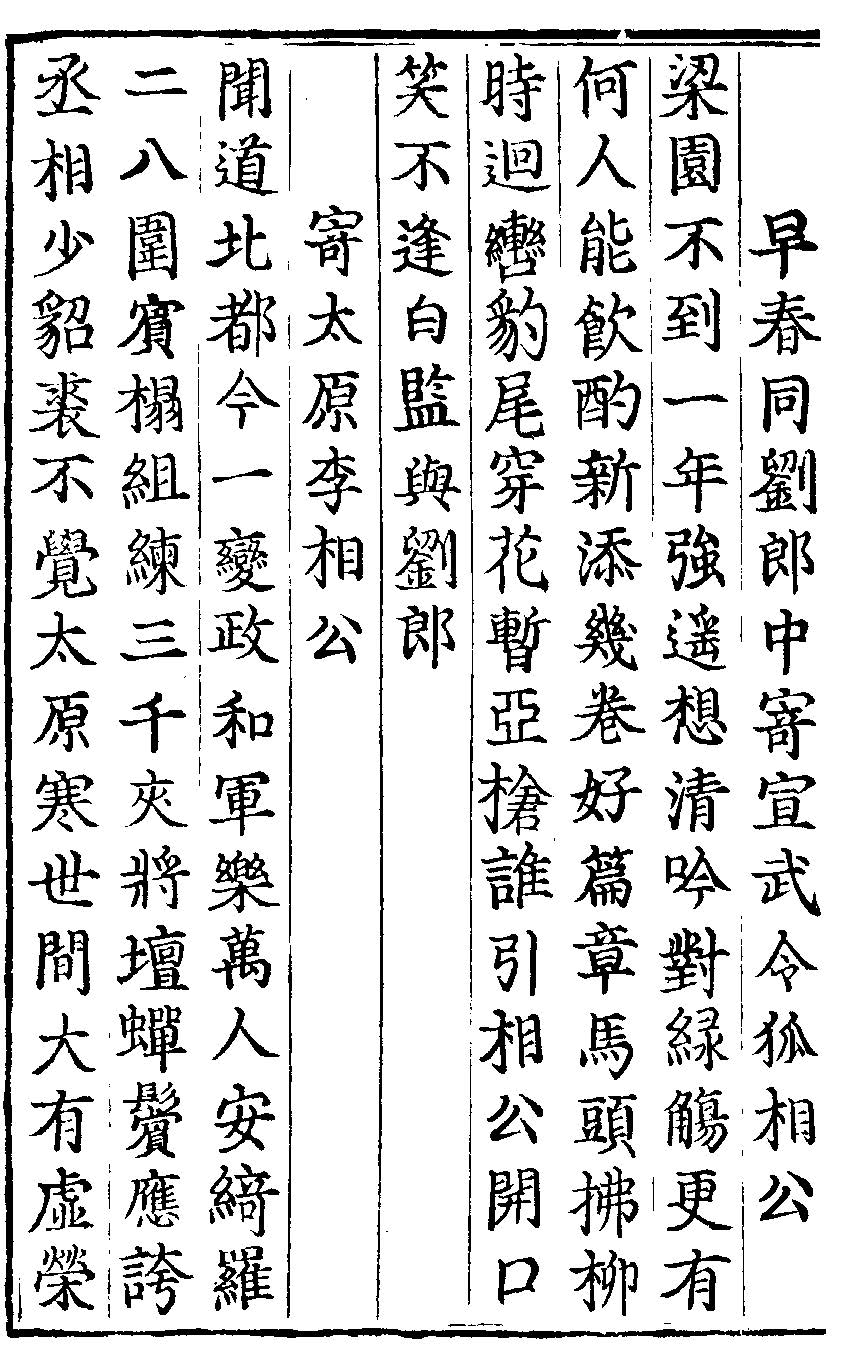 早春同劉郎中寄宣武令狐相公
梁園不到一年強遥想清吟對緑觴更有
何人能飲酌新添幾卷好篇章馬頭拂柳
時迴轡豹尾穿花暫亞槍誰引相公開口
笑不逢白監與劉郎
寄太原李相公
聞道北都今一變政和軍樂萬人安綺羅
二八圍賓榻組練三千夾將壇蟬鬢應誇
丞相少貂裘不覺太原寒世間大有虛榮